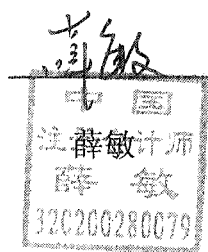 薛敏
中国
注册会计师
薛敏
薛敏
320200280079